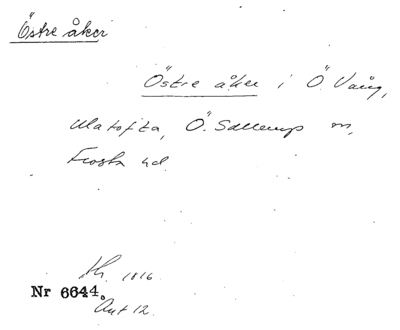 Östre åker
Östre åker i Ö. Vång,
Ulatofta, Ö. Sallerup sn,
Frosta hd.
Sk. 1816
Nr 6644.
Akt 12.